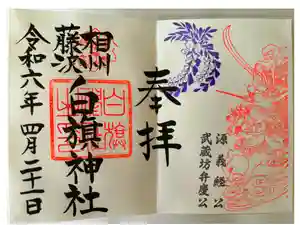 源義経公
武蔵坊弁慶公
奉拝
相州
藤沢
白旗神社
令和六年四月二十一日